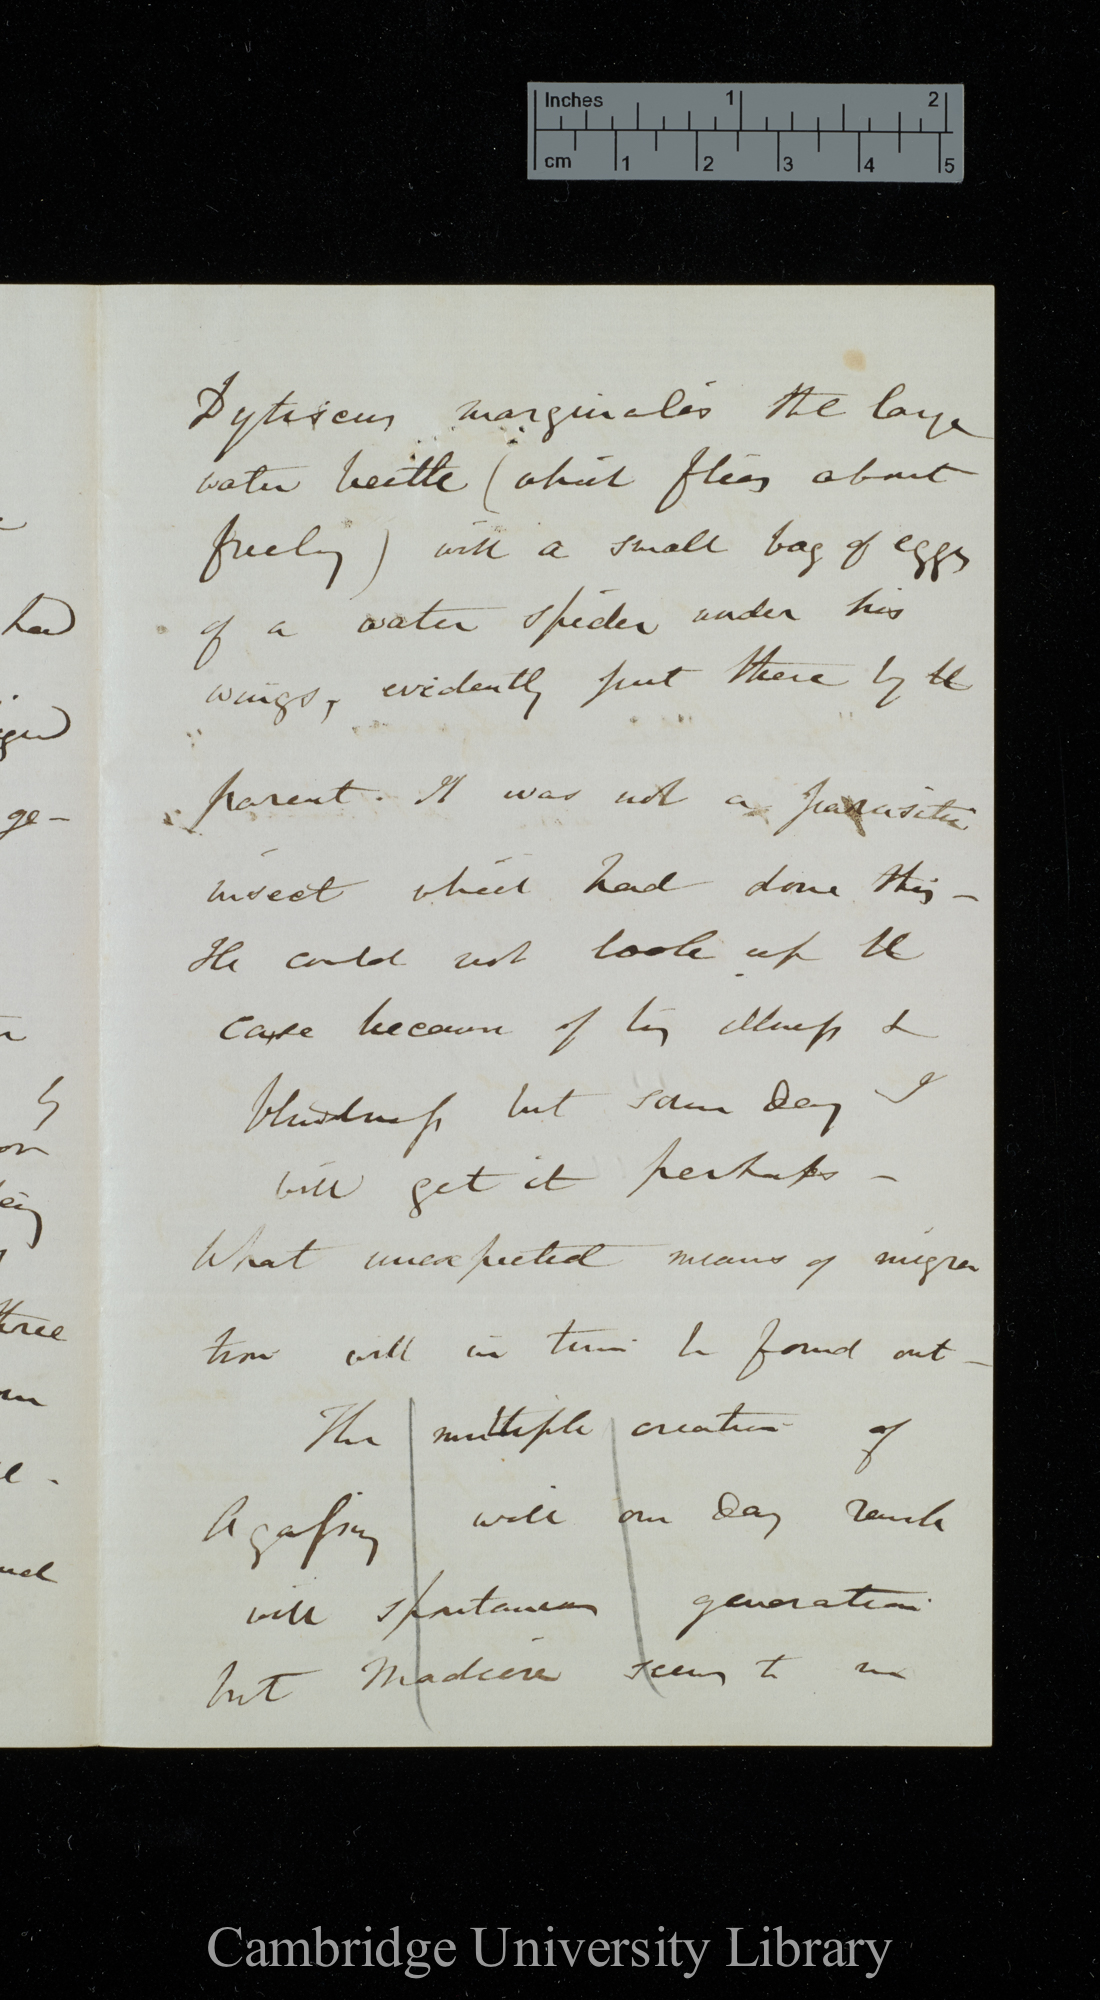 Inches 1 2
cm 1 2 3 4 5
Dytiscus marginalis the large
water beetle (which flies about
freely) with a small bag of eggs
of a water spider under his
wings, evidently put there by the
parent. It was not a parasitic
insect which had done this—
He could not look up the
case because of his illness &
blindness but some day I
will get it perhaps—
What unexpected means of migra
tion will in time be found out—
The multiple creation of
Agassiz will one day rank
with spontaneous generation
but Madeira seems to me
had
ge-
by
on
three
Cambridge University Library